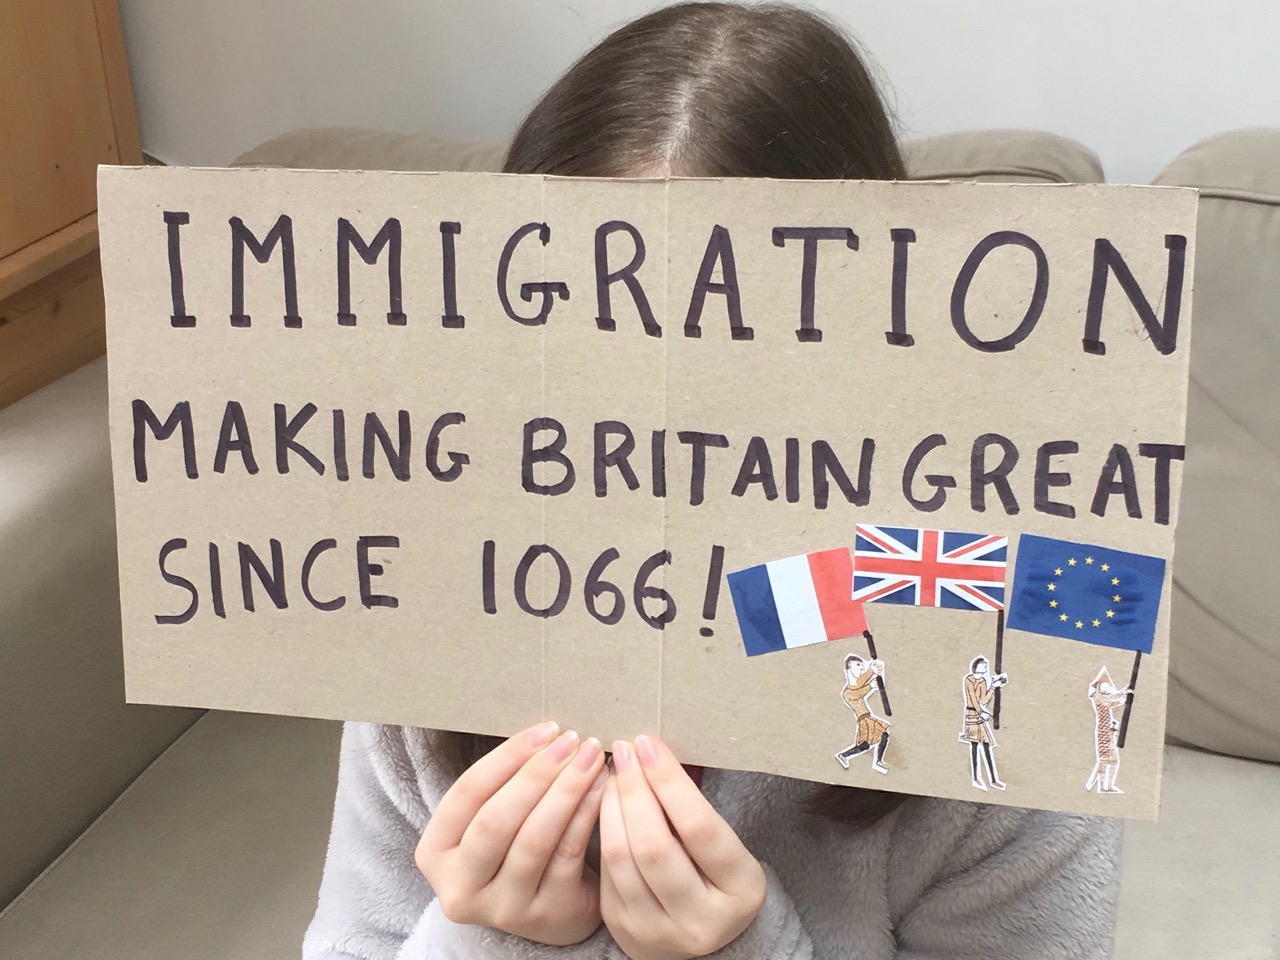 IMMIGRATION
MAKING BRITAIN GREAT
SINCE 1066!